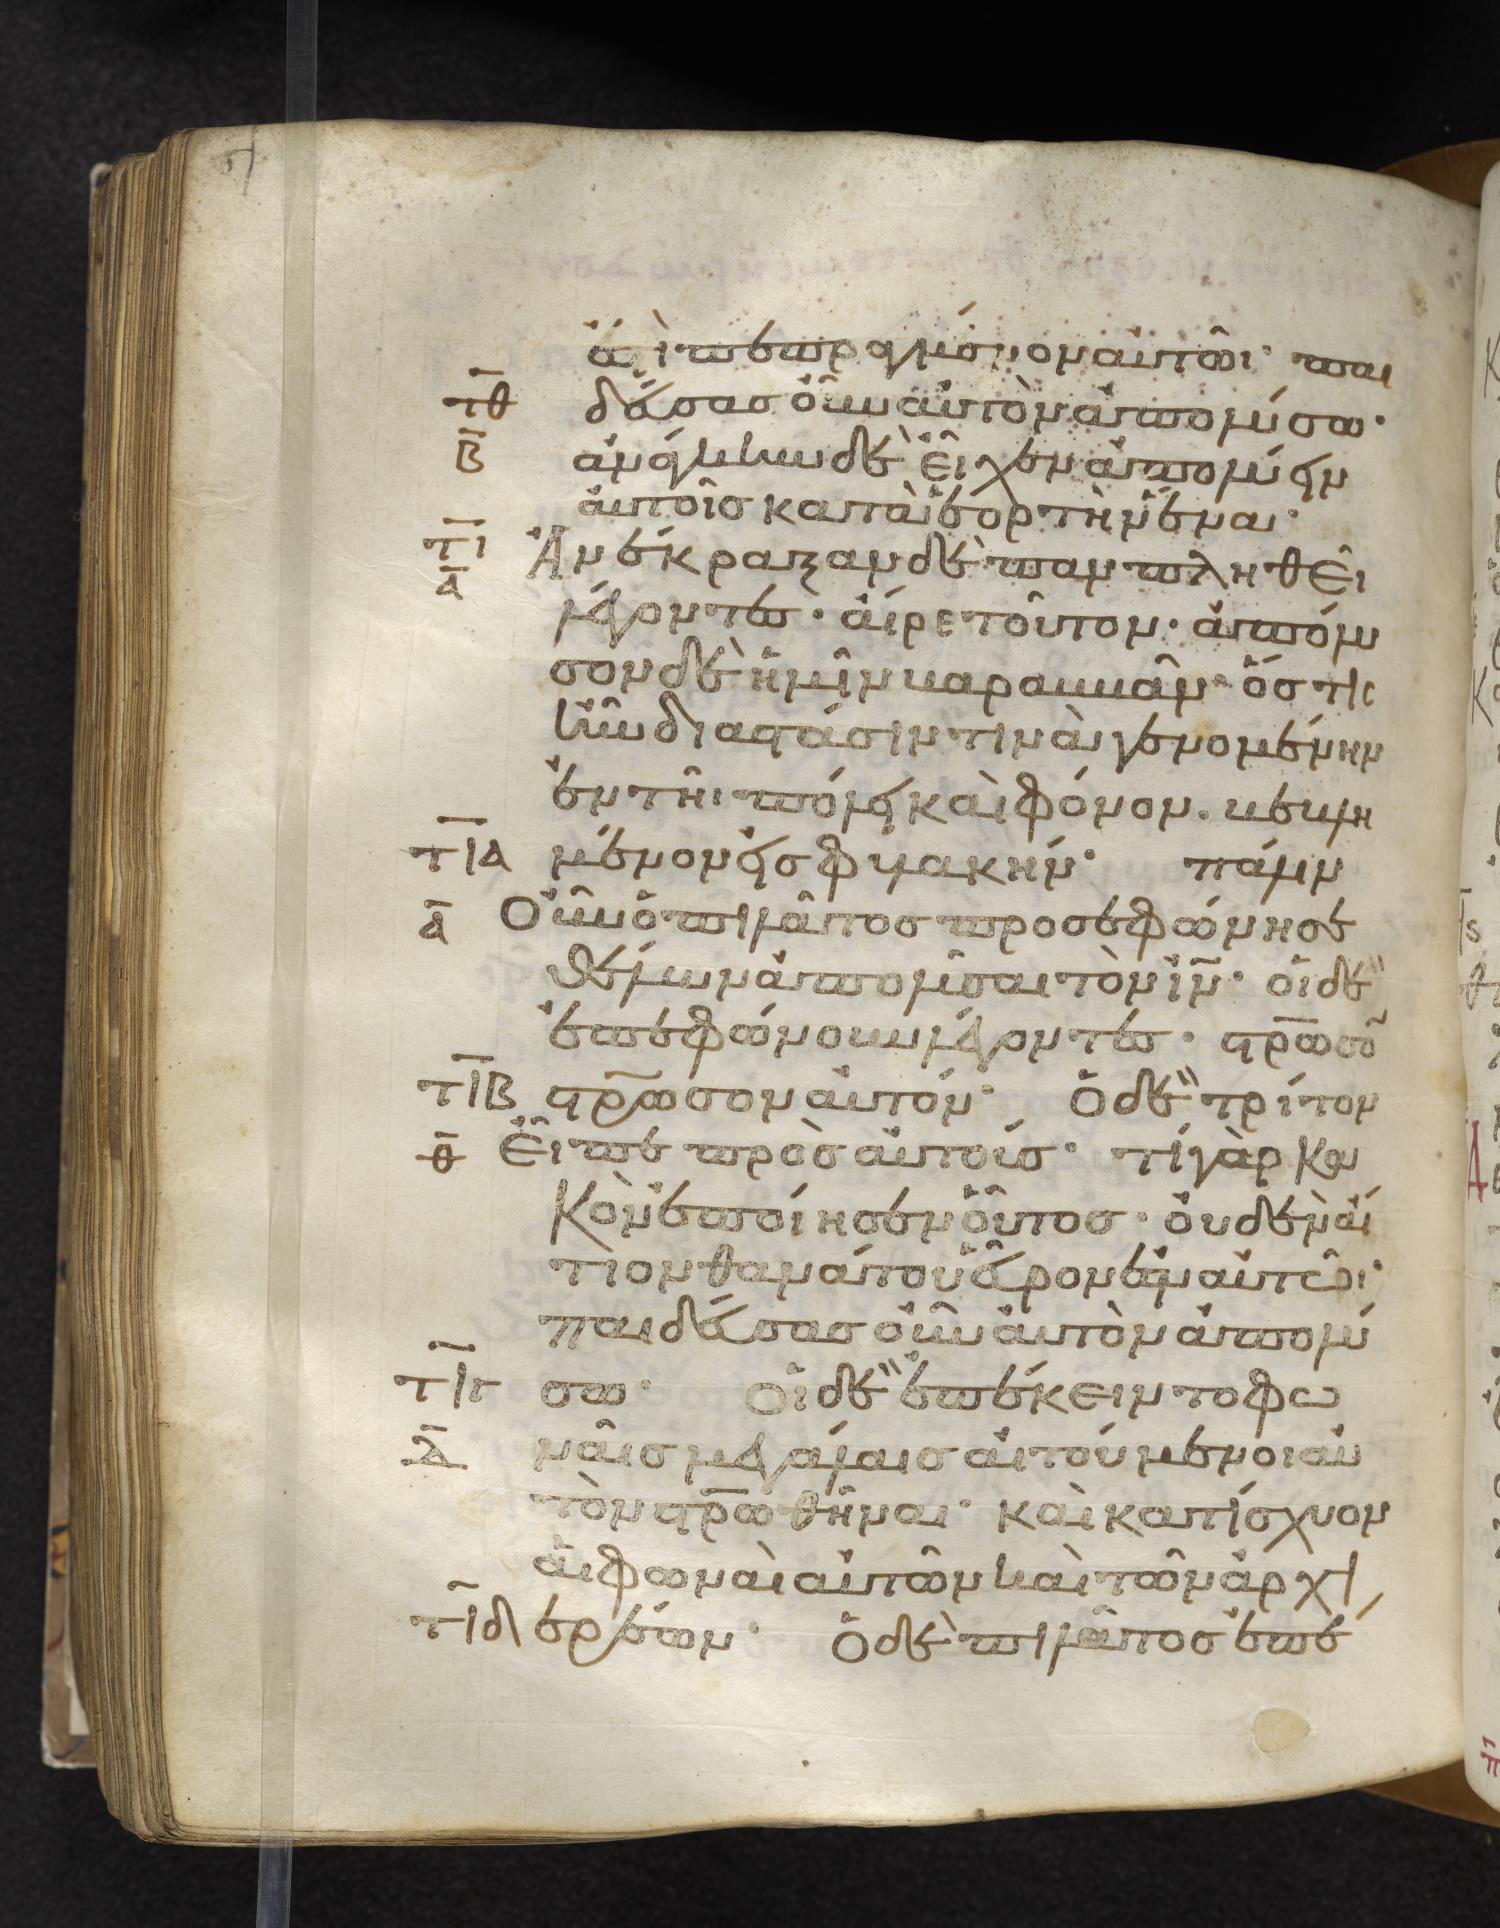 ἐστὶ πεπραγμένον αὐτῶι· παι
τθ δεύσας οὖν αὐτὸν ἀπολύσω·
β ἀνάγκην δὲ εἶχεν ἀπολύειν
αὐτοῖς κατὰ ἑορτὴν ἕνα·
τι Ἀνέκραξαν δὲ παμπληθεὶ
α λέγοντες· αἶρε τοῦτον· ἀπόλυ
σον δὲ ἡμῖν βαραββᾶν· ὅστις
ἦν διὰ στάσιν τινὰ γενομένην
ἐν τῆι πόλει καὶ φόνον. βεβλη
τια μένον εἰς φυλακήν· πάλιν
α Οὖν ὁ πιλᾶτος προσεφώνησε
θέλων ἀπολῦσαι τὸν ἰν̄· οἱ δὲ
ἐπεφώνουν λέγοντες· στρ̄ωσο̄
τιβ στρ̄ωσον αὐτόν· Ὁ δὲ τρίτον
θ Εἶπε πρὸς αὐτούς· τί γὰρ κα
κὸν ἐποίησεν οὗτος· οὐδὲν αἴ
τιον θανάτου εὗρον ἐν αὐτῶι·
παιδεύσας οὖν αὐτὸν ἀπολύ
τιγ σω· Οἱ δὲ ἐπέκειντο φω
α ναῖς μεγάλαις αἰτούμενοι αὐ
τὸν στρ̄ωθῆναι· καὶ κατίσχυον
αἱ φωναὶ αὐτῶν καὶ τῶν ἀρχι
τιδ ερέων· Ὁ δὲ πιλᾶτος ἐπέ